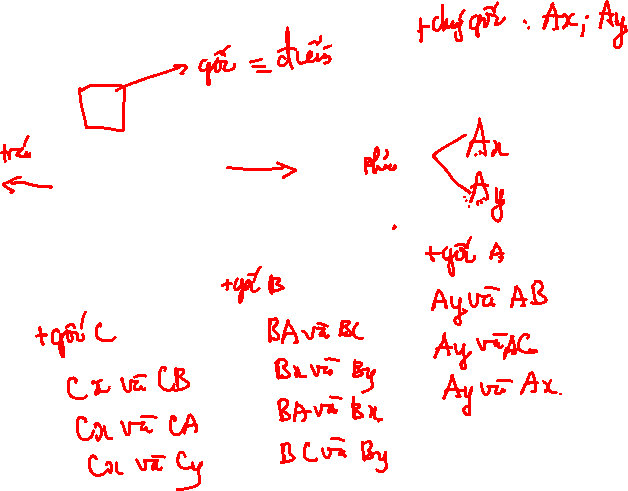 +chung gốc : Ax; Ay
gốc ≡ điểm
trái
Ax
Ay
+gốc A
Ay và AB
Ay và AC
Ay và Ax.
+gốc B
BA và BC
Bx và By
BA và Bx
BC và By
+gốc C
Cx và CB
Cx và CA
Cx và Cy